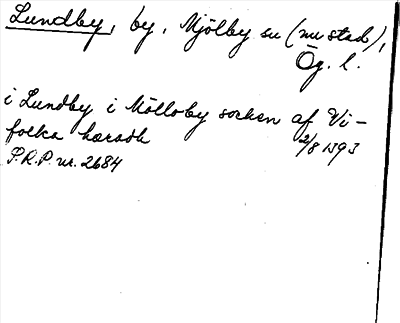 Lundby, by, Mjölby su (nu stad),
Ög. l.
i Lundby i Mölloby sochen af Vi-
folka hæradh 2/8 1393
S.R.P. nr. 2684